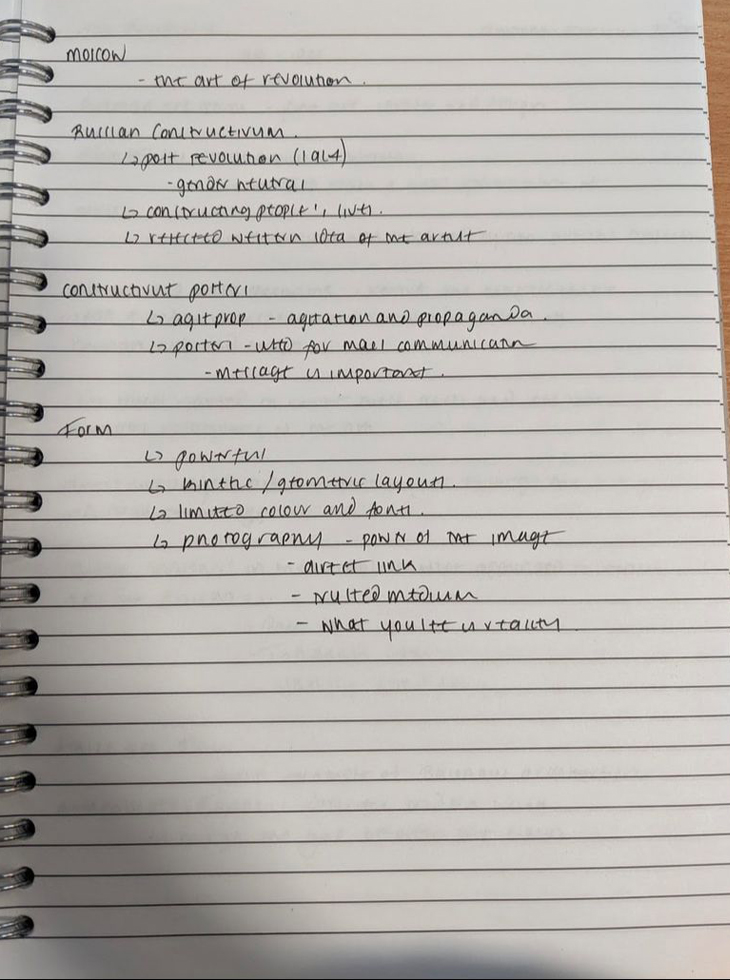 Moscow
- the art of revolution.
Russian Constructivism.
↳ post revolution (1914)
- gender neutral
↳ constructing people's lives.
↳ rejected western idea of the artist
constructivist posters
↳ agitprop - agitation and propaganda.
↳ posters - used for mass communication
- message is important.
Form
↳ powerful
↳ kinetic / geometric layouts.
↳ limited colour and fonts.
↳ photography - power of the image
- direct link
- trusted medium
- what you see is reality